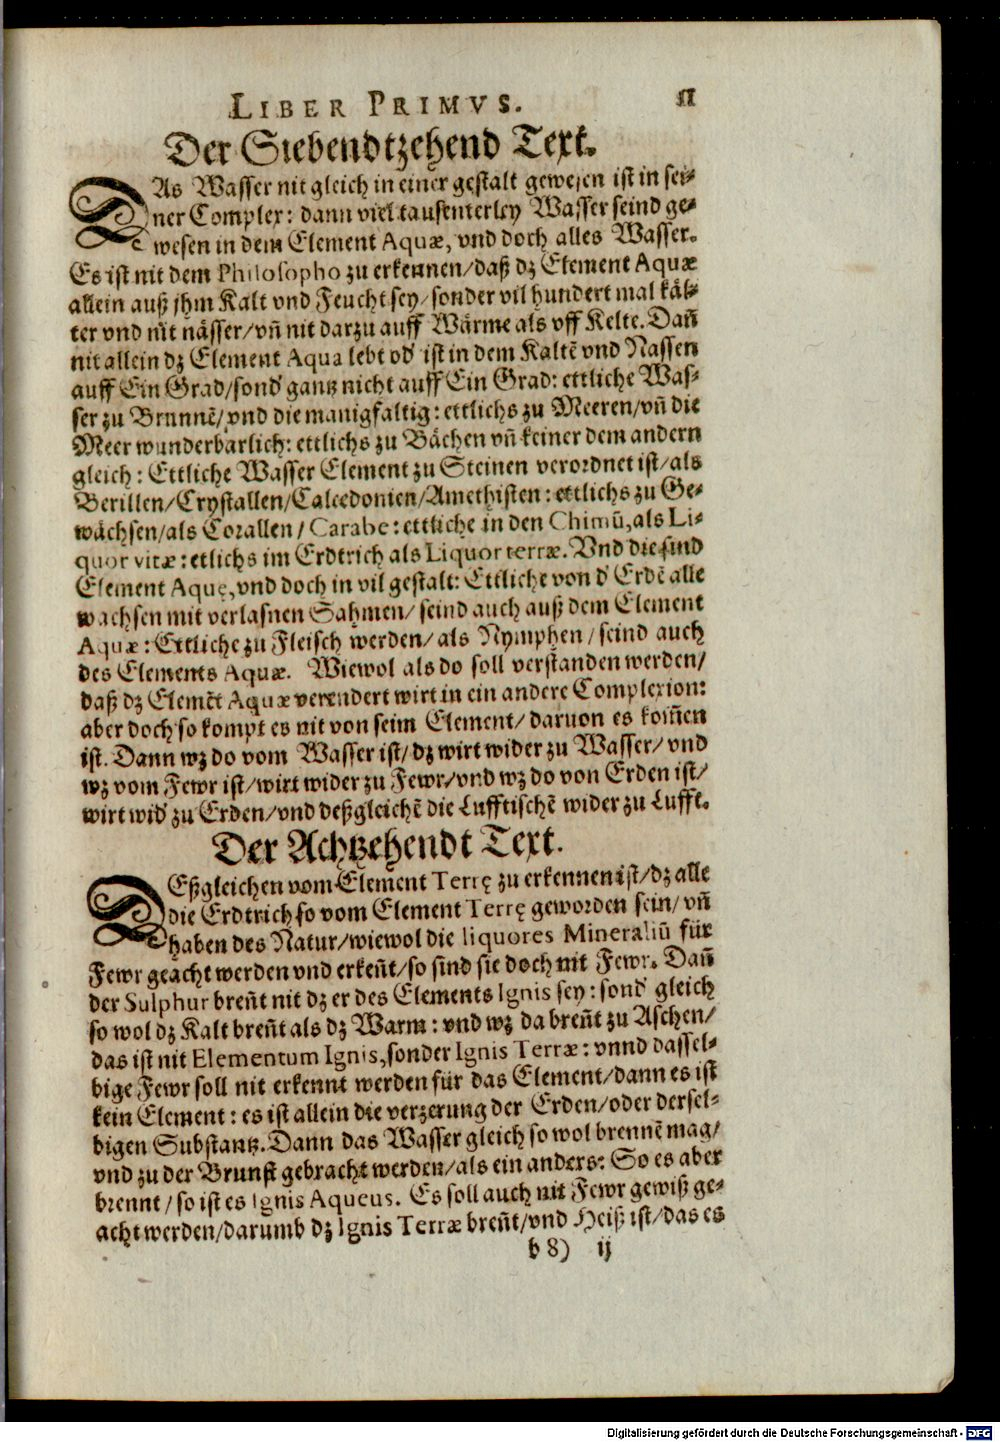 LIBER PRIMVS. 11
Der Siebendtzehend Text.
DAs Wasser nit gleich in einer gestalt gewesen ist in sei-
ner Complex: dann viel tausenterley Wasser seind ge-
wesen in dem Element Aquæ, vnd doch alles Wasser.
Es ist nit dem Philosopho zu erkennen/daß dz Element Aquæ
allein auß jhm Kalt vnd Feucht sey/sonder vil hundert mal käl-
ter vnd nit nässer/vñ nit darzu auff Wärme als vff Kelte. Dañ
nit allein dz Element Aqua lebt od' ist in dem Kaltẽ vnd Nassen
auff Ein Grad/sond' gantz nicht auff Ein Grad: ettliche Was-
ser zu Brunnẽ/vnd die manigfaltig: ettlichs zu Meeren/vñ die
Meer wunderbarlich: ettlichs zu Bächen vñ keiner dem andern
gleich: Ettliche Wasser Element zu Steinen verordnet ist/als
Berillen/Crystallen/Calcedonien/Amethisten: ettlichs zu Ge-
wächsen/als Corallen/Carabe: ettliche in den Chimũ, als Li-
quor vitæ: etlichs im Erdtrich als Liquor terræ. Vnd die sind
Element Aquę, vnd doch in vil gestalt: Ettliche von d' Erdẽ alle
wachsen mit verlasnen Sahmen/seind auch auß dem Element
Aquæ: Ettliche zu Fleisch werden/als Nymphen/seind auch
des Elements Aquæ. Wiewol als do soll verstanden werden/
daß dz Elemẽt Aquæ verendert wirt in ein andere Complexion:
aber doch so kompt es nit von seim Element/daruon es kom̃en
ist. Dann wz do vom Wasser ist/dz wirt wider zu Wasser/vnd
wz vom Fewr ist/wirt wider zu Fewr/vnd wz do von Erden ist/
wirt wid' zu Erden/vnd deßgleichẽ die Lufftischẽ wider zu Lufft.
Der Achtzehendt Text.
DEßgleichen vom Element Terrę zu erkennen ist/dz alle
die Erdtrich so vom Element Terrę geworden sein/vñ
haben des Natur/wiewol die liquores Mineraliũ für
Fewr geacht werden vnd erkeñt/so sind sie doch nit Fewr. Dañ
der Sulphur breñt nit dz er des Elements Ignis sey: sond' gleich
so wol dz Kalt breñt als dz Warm: vnd wz da breñt zu Aschen/
das ist nit Elementum Ignis, sonder Ignis Terræ: vnnd dassel-
bige Fewr soll nit erkennt werden für das Element/dann es ist
kein Element: es ist allein die verzerung der Erden/oder dersel-
bigen Substantz. Dann das Wasser gleich so wol brennẽ mag/
vnd zu der Brunst gebracht werden/als ein anders: So es aber
brennt/so ist es Ignis Aqueus. Es soll auch nit Fewr gewiß ge-
acht werden/darumb dz Ignis Terræ breñt/vnd Heiß ist/das es
b 8) ij
Digitalisierung gefördert durch die Deutsche Forschungsgemeinschaft - DFG